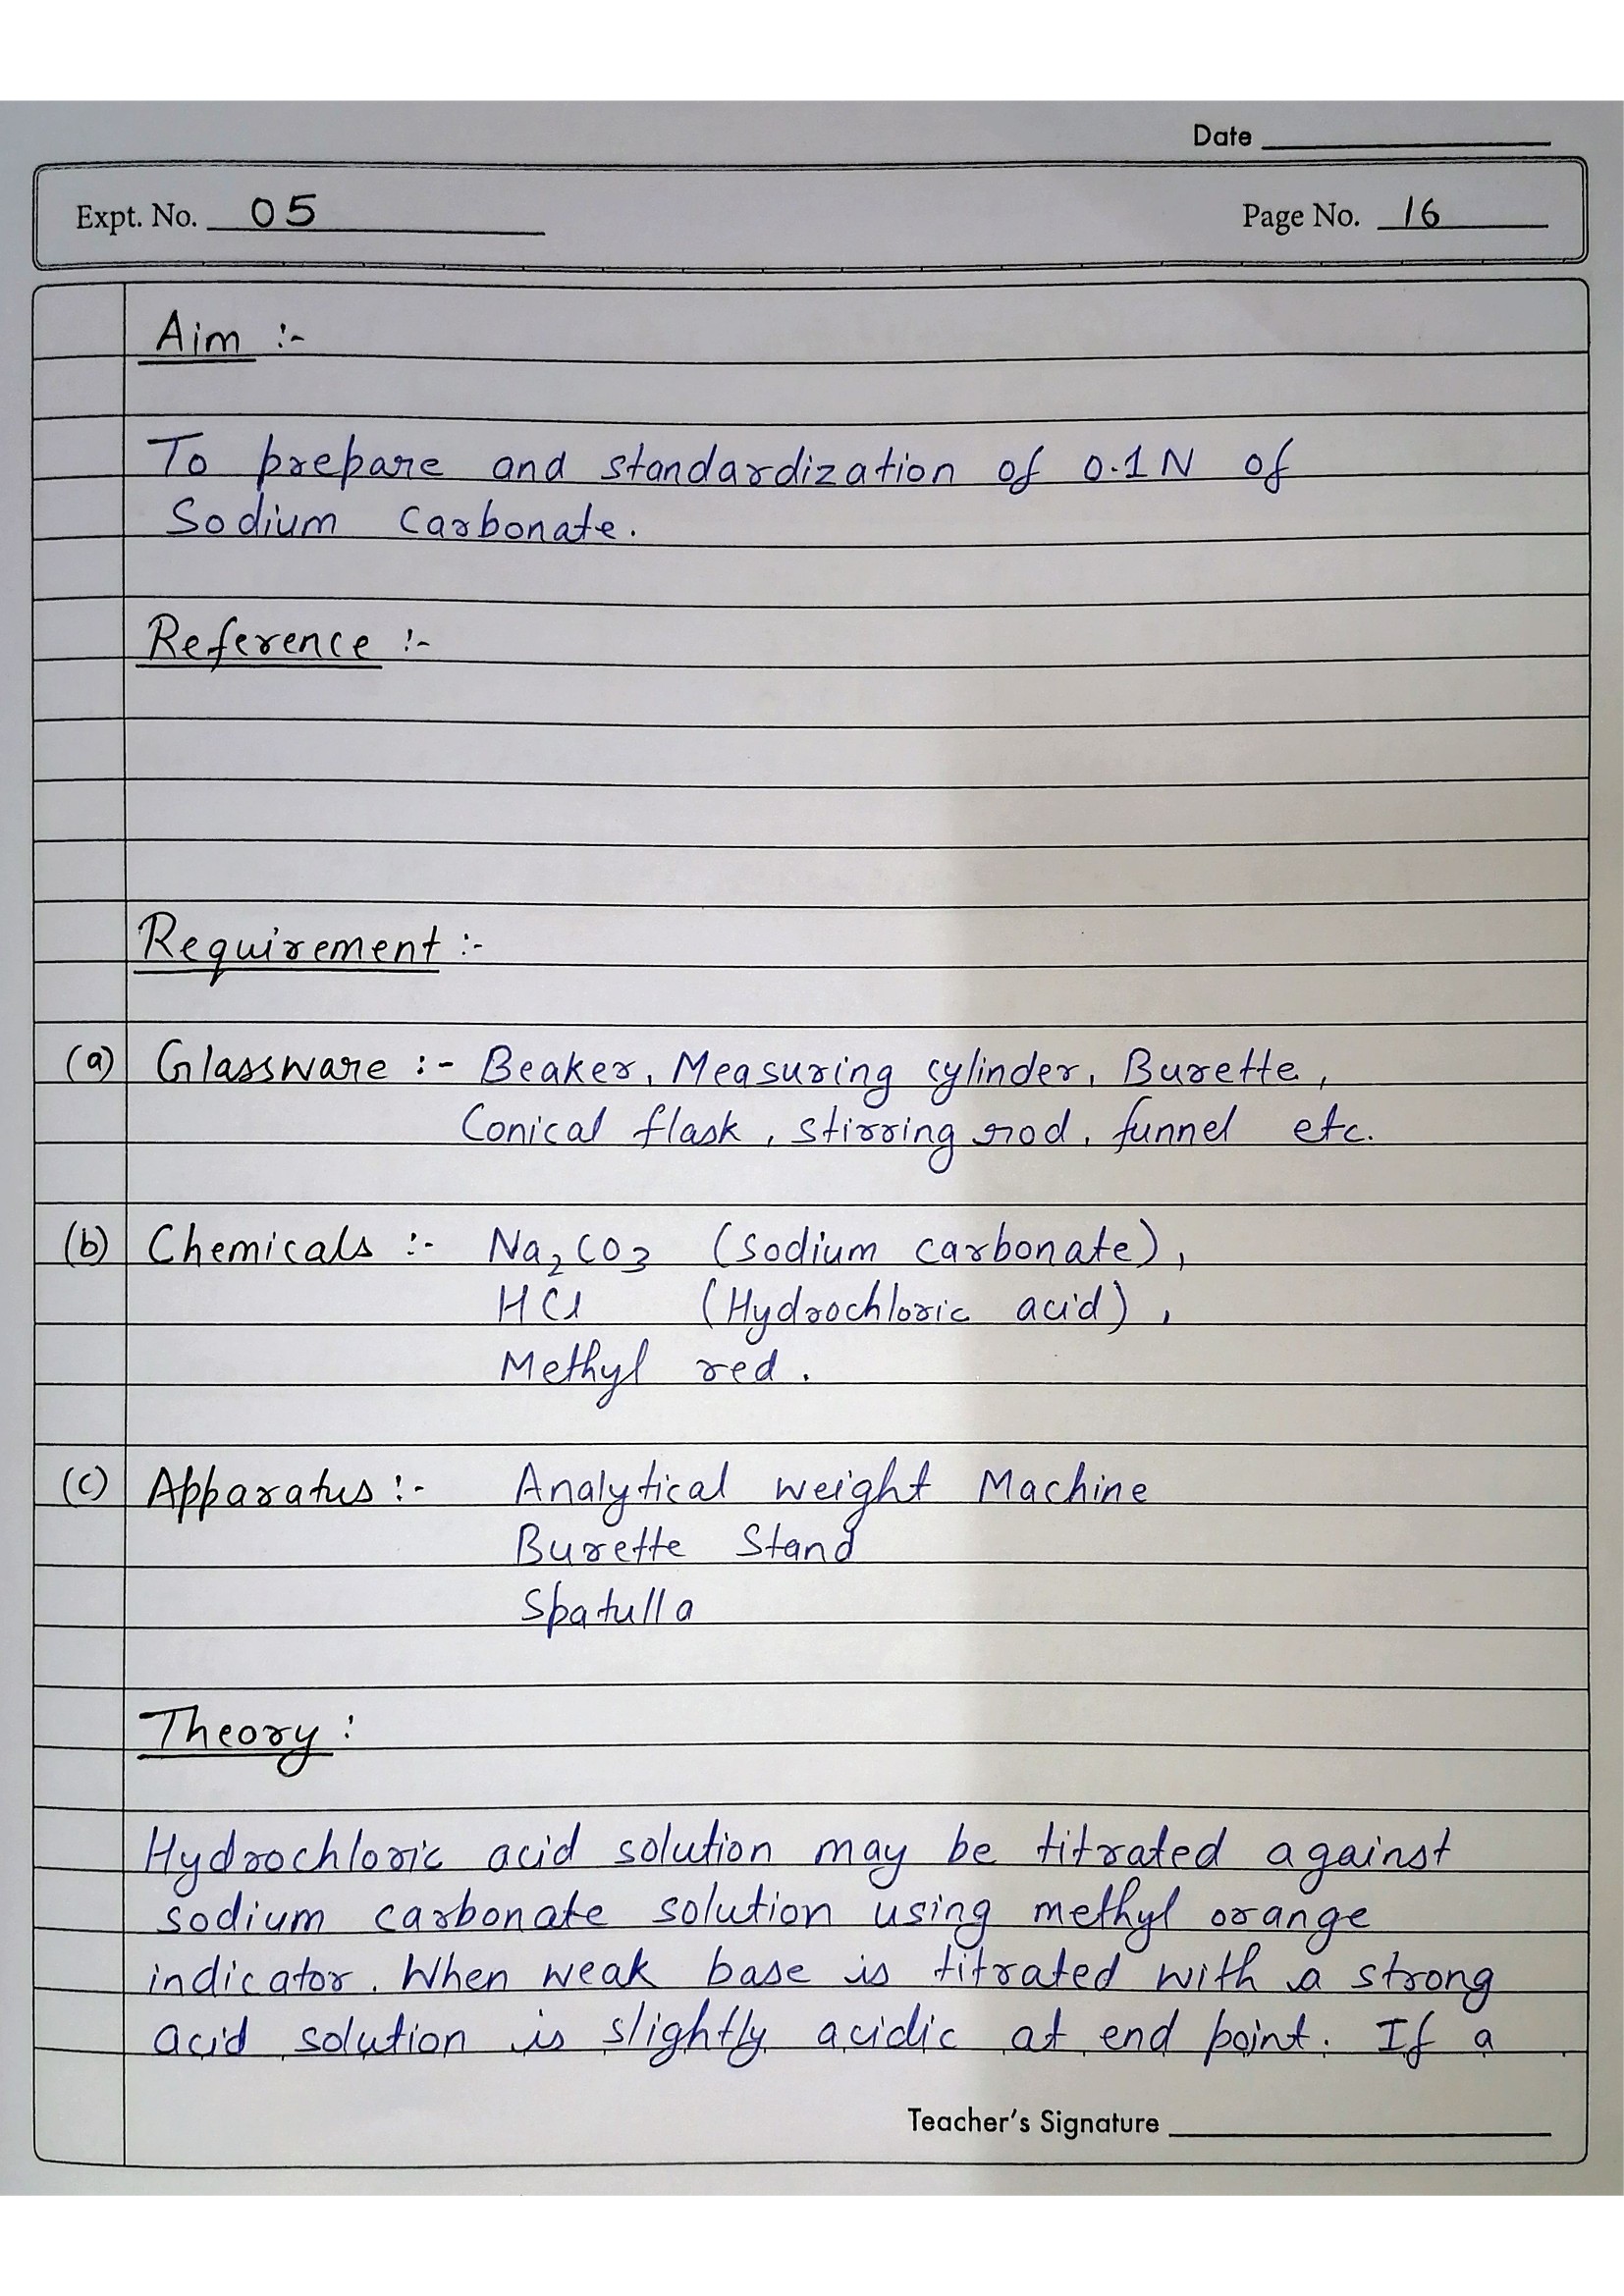 Date
Expt. No. 05
Page No. 16
Aim :-
To prepare and standardization of 0.1 N of
Sodium Carbonate.
Reference :-
Requirement :-
(a) Glassware :- Beaker, Measuring cylinder, Burette,
Conical flask, stirring rod, funnel etc.
(b) Chemicals :- Na₂CO₃ (sodium carbonate),
HCl (Hydrochloric acid),
Methyl red.
(c) Apparatus :- Analytical weight Machine
Burette Stand
Spatulla
Theory :
Hydrochloric acid solution may be titrated against
sodium carbonate solution using methyl orange
indicator. When weak base is titrated with a strong
acid solution is slightly acidic at end point. If a
Teacher's Signature